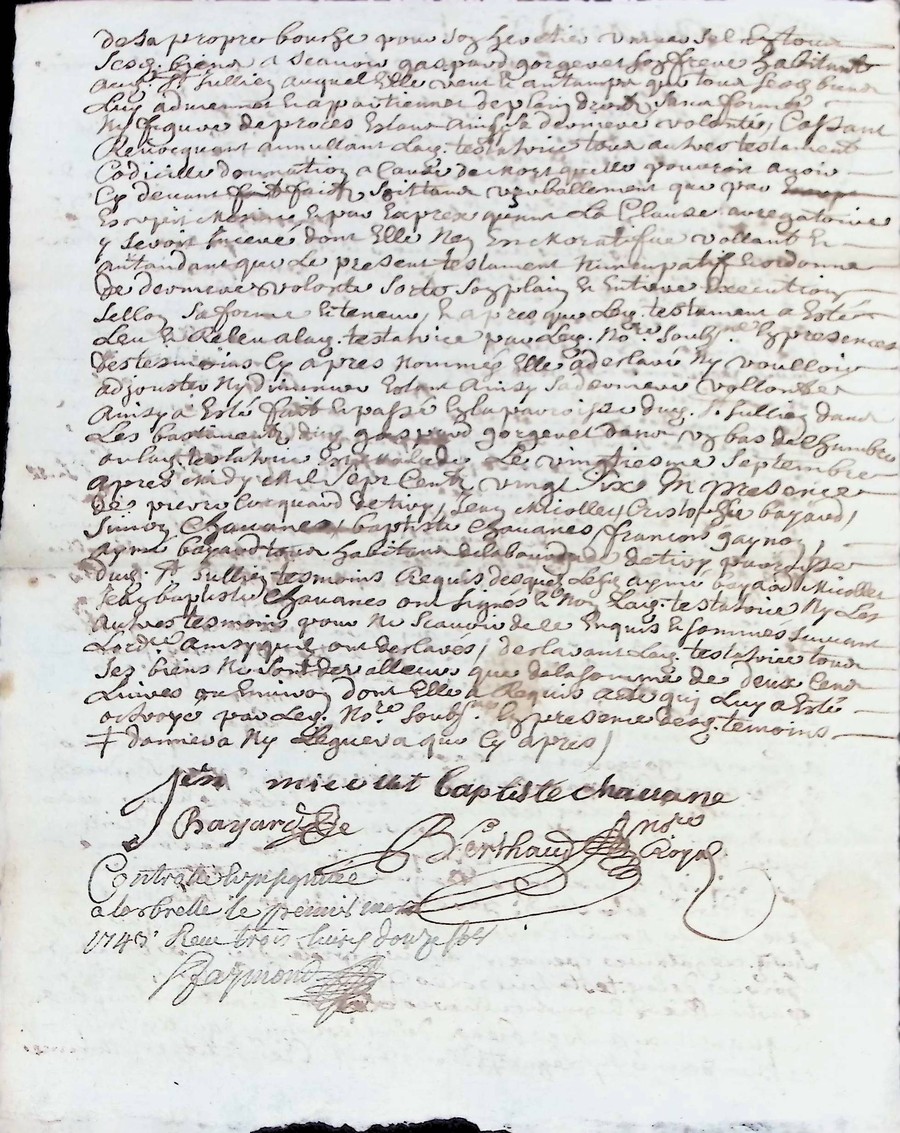 de sa propre bouche pour son heretier universel en tous
ses biens a scavoir gaspard gorgeret son frere habitant
aud. St Jullien auquel elle veut et antamps que tous sesd. biens
Luy adviennent et apartiennent de plain droit sans forme
Ny figure de proces Estant ainsi sa derniere volonté, Cassant
Revocquant annullant Lad. testatrice tous autres testament
Codicille donnation a Cause de Mort quelle pouroit avoir
Cy devant fait soit tant verballement que par
Escript mesme et par Expres quant La Clause deregatoire
y seroit Inceré dont Elle Ney En memoratifue vollant et
antandant que Le present testament Nuncupatif et ordonne
de derniere volonté sorte son plain et Entiere Execution
sellon sa forme et teneur, Et apres que Led. testament a Esté
Leu et Releu a lad. testatrice par Led. Nore. soubsne. En presences
des tesmoins Cy apres Nommés Elle a desclaré Ny voulloir
adjouster Ny diminuer Estant Ainsy sa derniere vollonté
Ainsy a Esté fait et passé En la parroisse dud. St Jullien dans
Les bastiments dud. gaspard gorgeret dans un bas de chambre
ou lad. testatrice Est malade Le vingtiesme Septembre
apres midy Mil Sept Cents vingt six En presence
de pierre Cocquard de tivy, Jean Micollet, Cristophe bayard,
Simon Chavanes, baptiste Chavanes, francois gaynon,
aymé bayard tous habitans de la bourgade de tivy parroisse
dud. St Jullien tesmoins Requis desquels Lesd. aymé bayard Micollet
et baptiste Chavanes ont signés et Non Lad. testatrice Ny Les
autres tesmoins pour Ne scavoir de ce Enquis et sommés suivant
Lordce. ainsy quil ont desclarés, desclarant Lad. testatrice tous
ses biens Ne sont de valleur que de la somme de deux Cens
Livres ou Environ dont Elle a Requis acte qui Luy a Esté
octroyé par Led. Nore. soubsne. En presence desd. temoins
‡ donnera Ny Leguera que Cy apres,
Jean micolet baptiste chavane
Bayard
Berthaud Nore Royal
Controllé
a larbrelle le premier mars
1743 Receu trois livres douze sols
Raymond